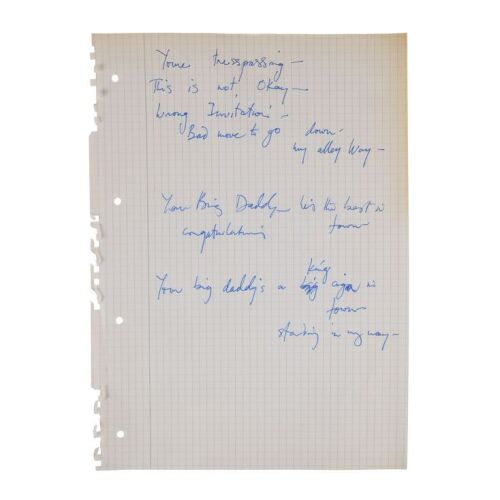 Youre tresspassing —
This is not, Okay —
Wrong Invitation' —
Bad move to go down -
my alley Way —
Your Big Daddy he's the best in
congratulations town
king
Your big daddy's a in
town
standing in my way —